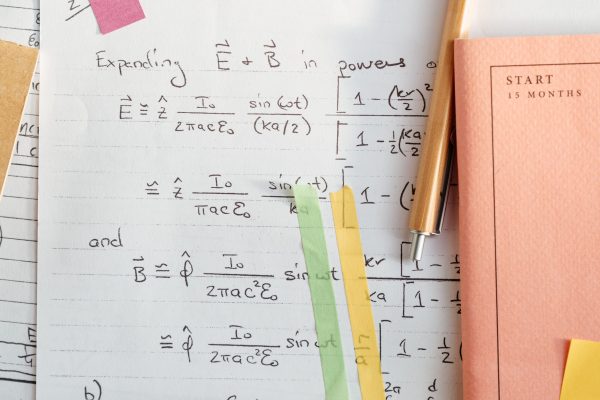 Expanding E⃗ + B⃗ in powers
E⃗ ≅ ẑ I₀/2πacε₀ sin(ωt)/(ka/2) [1 - (kr/2)²
[1 - ½(ka
≅ ẑ I₀/πacε₀ sin(ωt)/ka [1 - (
and
B⃗ ≅ φ̂ I₀/2πac²ε₀ sin ωt kr/ka [1 - ½
[1 - ½
≅ φ̂ I₀/2πac²ε₀ sin ωt [1 - ½(
b)
START
15 MONTHS